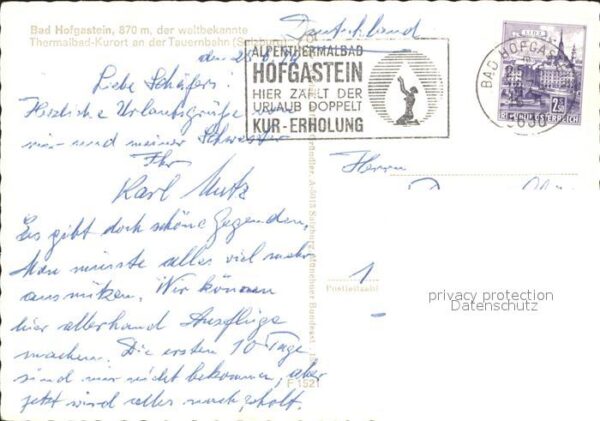 Bad Hofgastein, 870 m, der weltbekannte
Thermalbad-Kurort an der Tauernbahn (Salzburg)
Deutschland
den
Liebe Schäfers!
Herzliche Urlaubsgrüße von
mir und meiner Schwester
Ihr
Karl Mutz
Es gibt doch schöne Gegenden,
Man müsste alles viel mehr
ausnützen. Wir können
hier allerhand Ausflüge
machen. Die ersten 10 Tage
sind mir nicht bekommen, aber
jetzt wird alles nachgeholt.
ALPENTHERMALBAD
HOFGASTEIN
HIER ZÄHLT DER
URLAUB DOPPELT
KUR-ERHOLUNG
BAD HOFGAST
5630
LINZ
2S
REPUBLIK ÖSTERREICH
Herrn
1
Postleitzahl
F 1521
privacy protection
Datenschutz